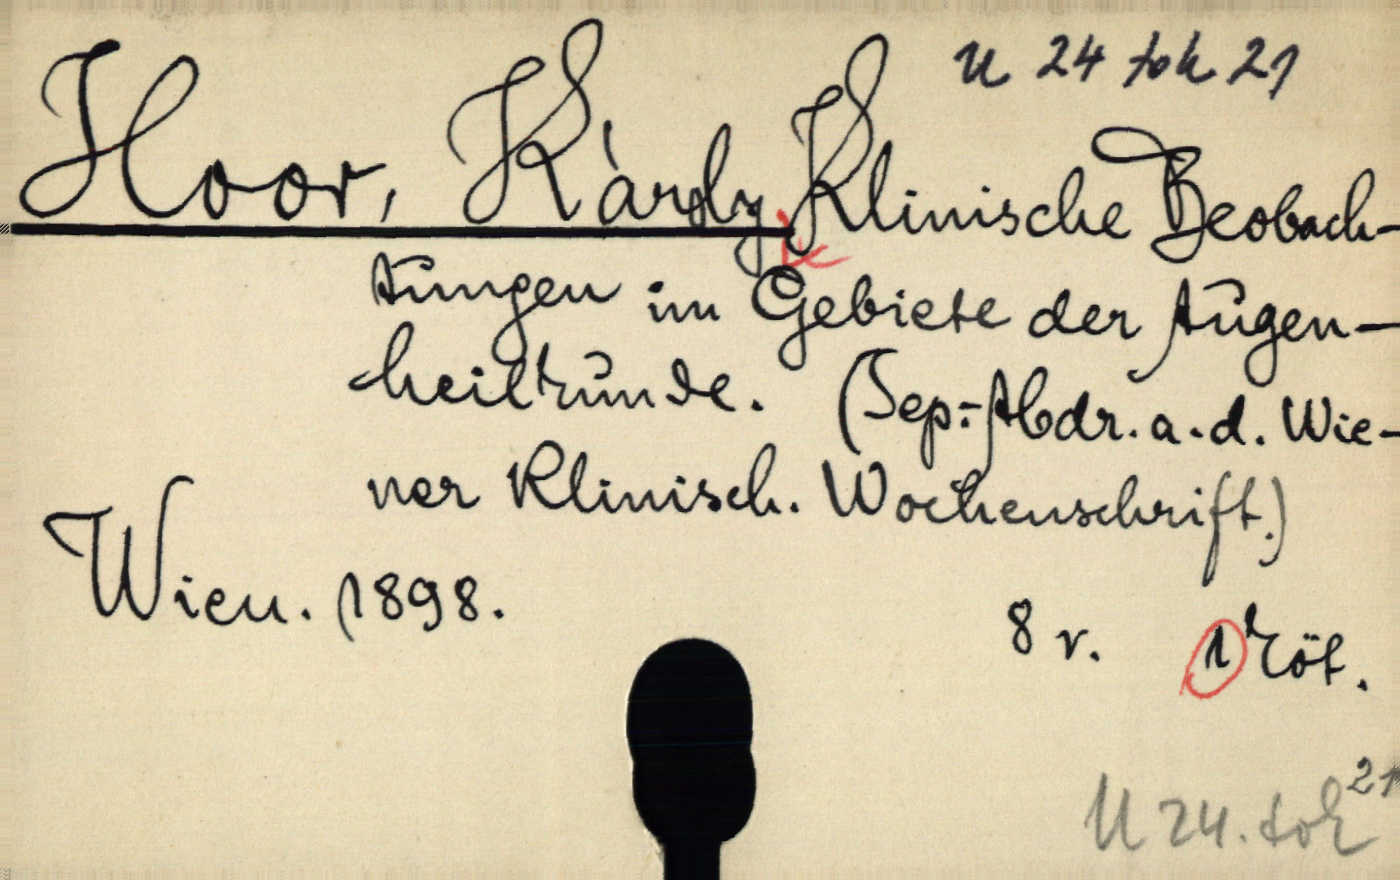 U 24 tok 21
Hoor, Károly Klinische Beobach-
tungen im Gebiete der Augen-
heilkunde. (Sep.-Abdr. a. d. Wie-
ner Klinisch. Wochenschrift.)
Wien. 1898.
8 r. 1 köt.
U 24. tok 21